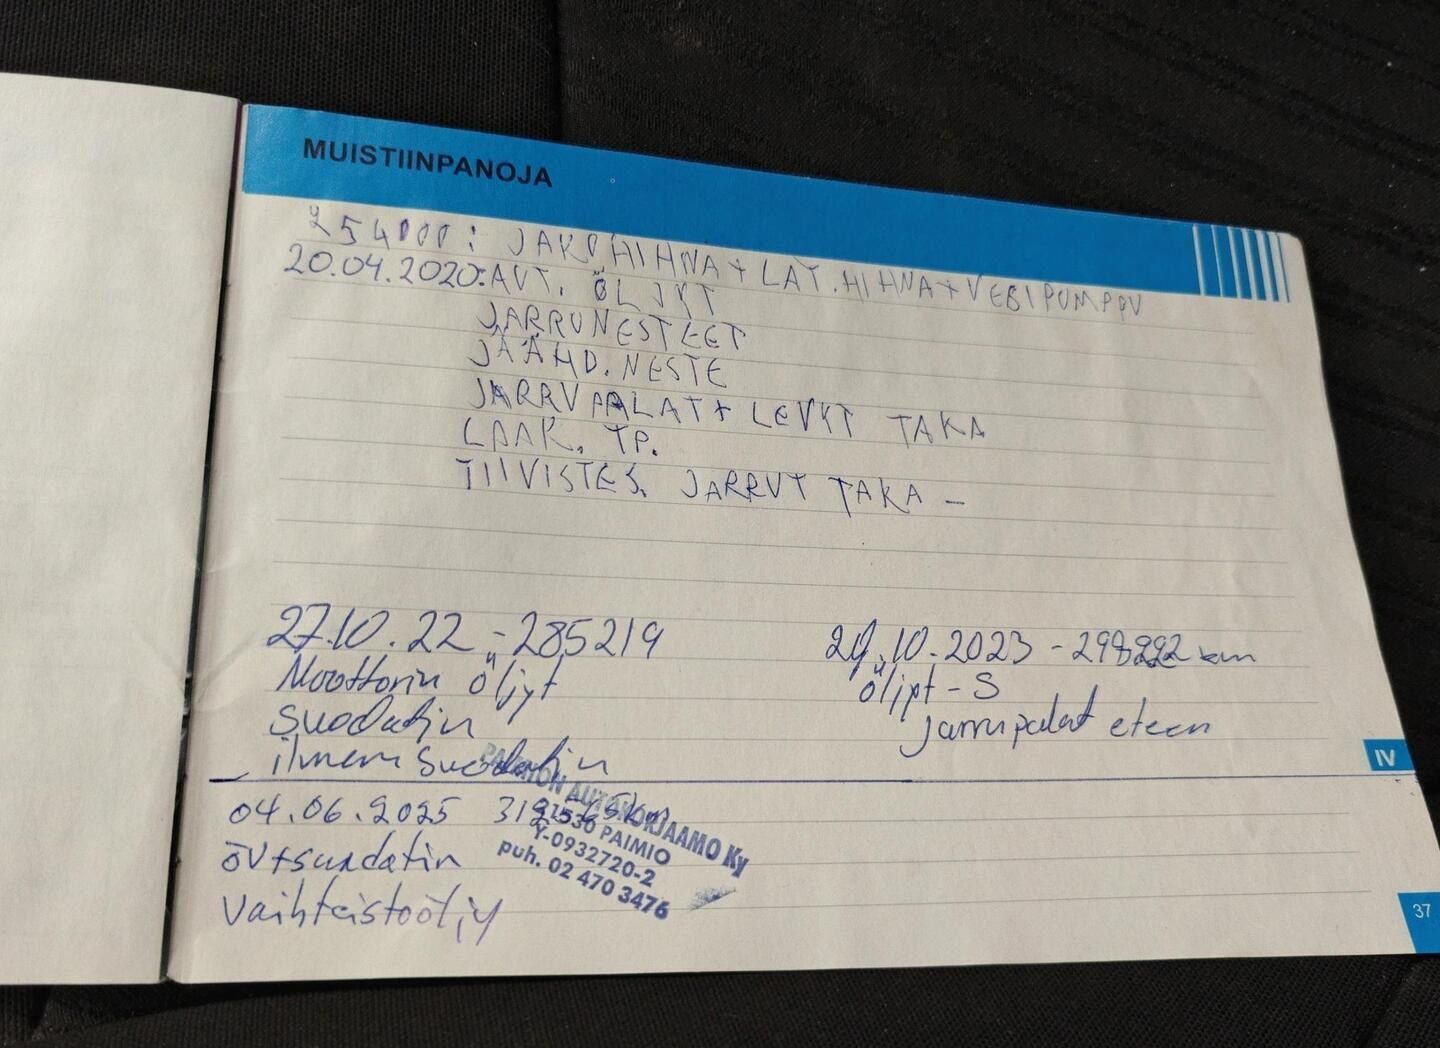 MUISTIINPANOJA
254000: JAKOHIHNA + LAT.HIHNA + VESIPUMPPU
20.04.2020: AVT. ÖLJYT
JARRUNESTEET
JÄÄHD. NESTE
JARRUPALAT + LEVYT TAKA
LAAK. TP.
TIIVISTES. JARRUT TAKA -
27.10.22 - 285219
Moottorin öljyt
suodatin
ilman suodatin
10.2023 - km
öljyt - S
jarrupalat eteen
IV
04.06.2025
ÖV+suodatin
Vaihteistoöljy
PAIMION AUTOKORJAAMO Ky
21530 PAIMIO
Y-0932720-2
puh. 02 470 3476
37